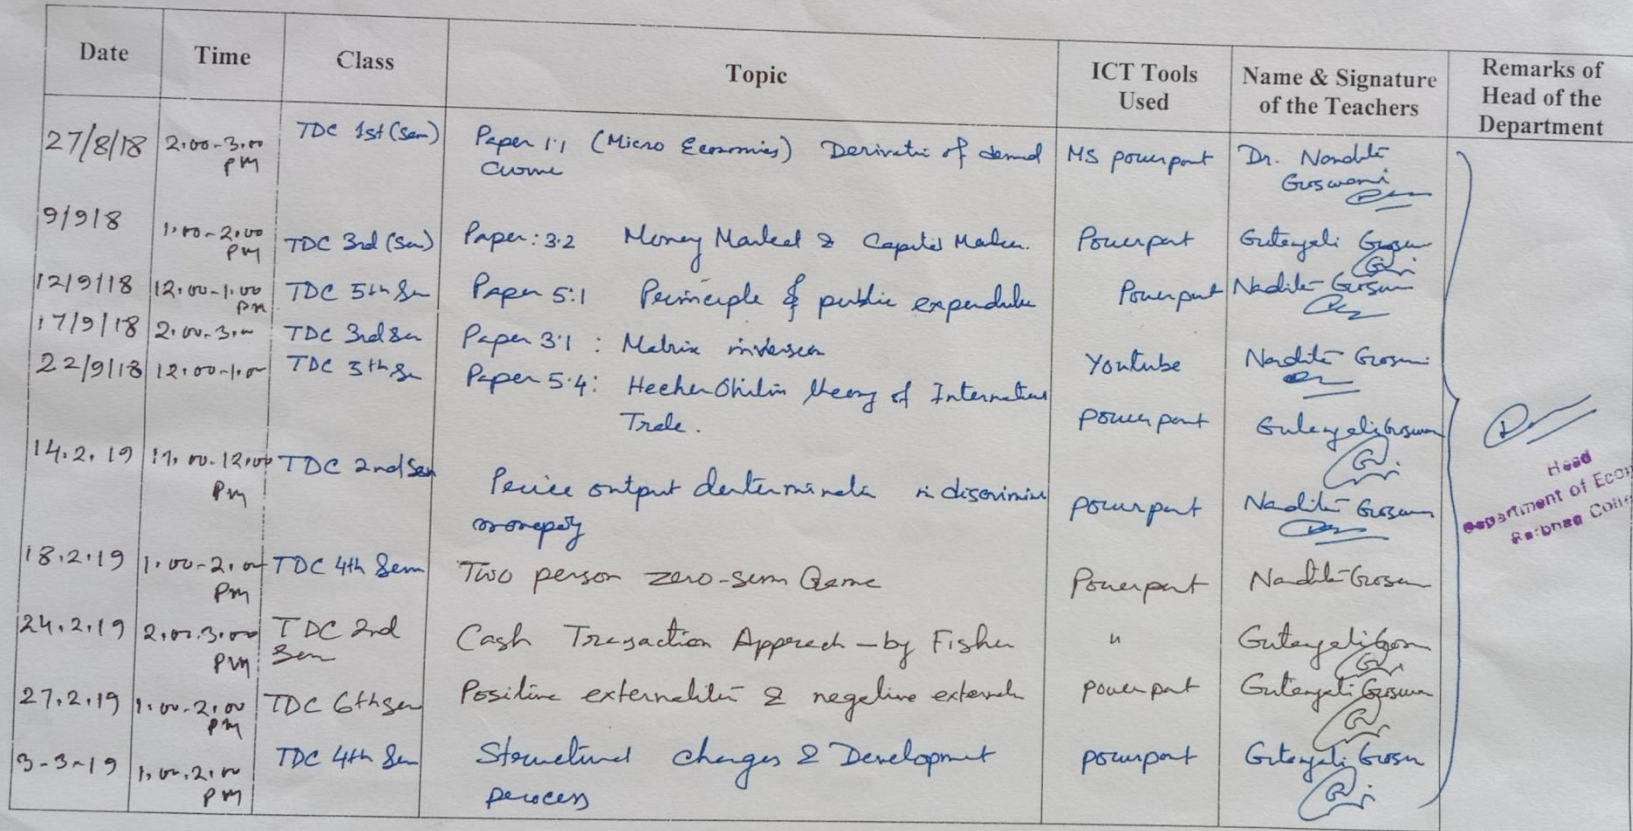 Date Time Class Topic ICT Tools Used Name & Signature of the Teachers Remarks of Head of the Department
27/8/18 2.00-3.00 PM TDC 1st (Sem) Paper 1.1 (Micro Economics) Derivati of demad curve MS powerpont Dr. Nandita Goswami
9/9/8 1.00-2.00 PM TDC 3rd (Sem) Paper: 3.2 Money Market & Capital Market Powerpont Gitanjali Goswami
12/9/18 12.00-1.00 PM TDC 5th Sem Paper 5:1 Principle of public expenditure Powerpont Nandita Goswami
17/9/18 2.00-3.00 TDC 3rd Sem Paper 3.1 : Matrix inversen Youtube Nandita Goswami
22/9/18 12.00-1.00 TDC 5th Sem Paper 5.4: Hecher Ohilin theory of International Trade. powerpont Gitanjali Goswami
14.2.19 11.00-12.00 PM TDC 2nd Sem Price output in monopoly powerpont Nandita Goswami
18.2.19 1.00-2.00 PM TDC 4th Sem Two person zero-sum Game Powerpont Nandita Goswami
24.2.19 2.00.3.00 PM TDC 2nd Sem Cash Trasaction Approch - by Fisher " Gitanjali Goswami
27.2.19 1.00-2.00 PM TDC 6th Sem Positive & negative powerpont Gitanjali Goswami
3-3-19 1.00.2.00 PM TDC 4th Sem Structural changes & Development process powerpont Gitanjali Goswami
Head
Department of Econ